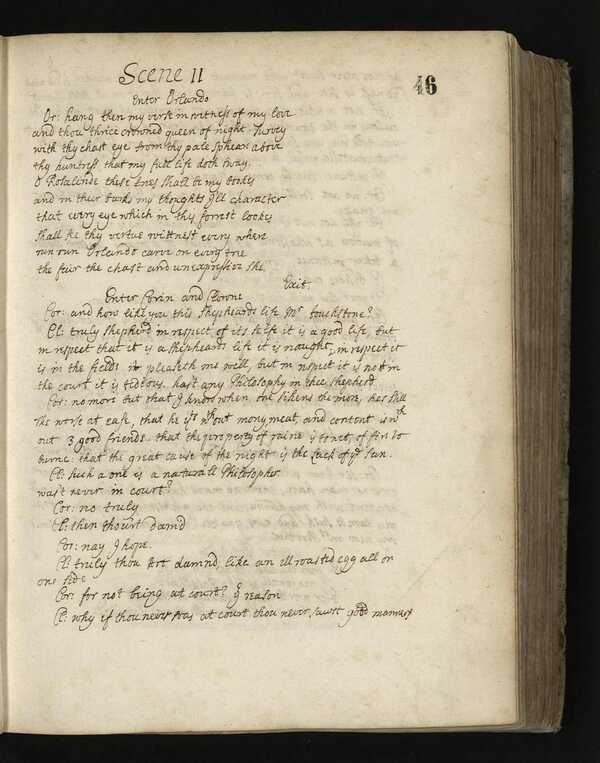 Scene II
46
Enter Orlando
Or: hang then my verse in wittness of my love
and thou thrice crowned queen of night survey
with thy chast eye from thy pale sphear above
thy huntress that my full life doth sway.
O Rosalinde these trees shall be my bookes
and in their bark my thoughts Ile character
that every eye which in thy forrest lookes
shall see thy vertue wittnest every where
run run Orlando carve on every tree
the fair the chast and unexpressive she.
Exit.
Enter Corin and Clowne
Cor: and how like you this shepheards life Mr touchstone?
Cl: truly shepherd in respect of its selfe it is a good life, but
in respect that it is a shepheards life it is naught, in respect it
is in the fields it pleaseth me well, but in respect it is not in
the court it is tidious. hast any Philosophy in thee shepherd
Cor: no more but that I know when one sickens the more, hees still
the worse at ease, that he yt is wthout mony, meat, and content is wth
out 3 good friends. that the property of raine is to wet, of fire to
burne: that the great cause of the night is the lack of ye sun.
Cl: such a one is a naturall Philosopher
was't never in court?
Cor: no truly
Cl: then thourt damd
Cor: nay I hope.
Cl: truly thou art damnd, like an ill roasted egg all on
one side
Cor: for not being at court? yr reason
Cl: why if thou never was at court thou never sawst good manners